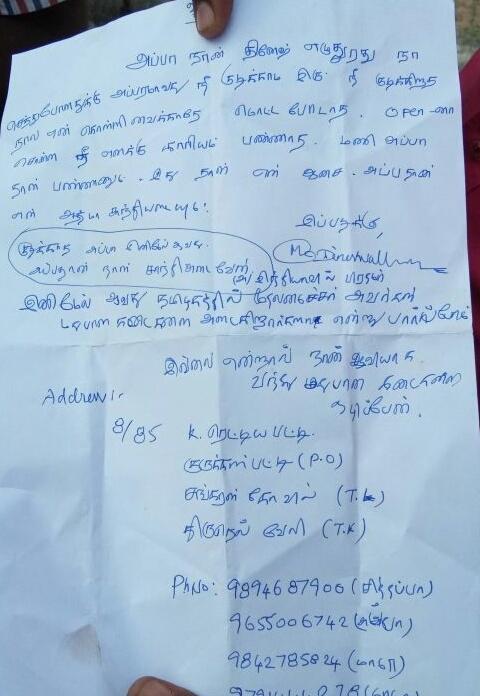 அப்பா நான் தினேஷ் எழுதுரது நா
செத்துபோனதுக்கு அப்பரமாவது நீ குடிக்காம இரு. நீ குடிக்கிறத
நால என் கொள்ளிவைக்காதே மொட்ட போடாத. Open-னா
சொன்னா நீ எனக்கு காரியம் பண்ணாத. மணி அப்பா
தான் பண்ணனும். இது தான் என் ஆசை. அப்பதான்
என் ஆத்மா சாந்தியடையும்.
இப்படிக்கு,
குடிக்காத அப்பா இனிமேலாவது.
அப்பதான் நான் சாந்தி அடைவேன்
இந்தியாவில் பிரதமர்
இனிமேல் ஆவது தமிழகத்தில் முதலமைச்சர் அவர்கள்
மதுபான கடைகளை அடைகிறார்களா என்று பார்ப்போம்
இல்லை என்றால் நான் ஆவியாக
வந்து மதுபான கடைகளை
ஒழிப்பேன்.
Address:-
8/85 K. ரெட்டியபட்டி.
குருக்கள்பட்டி (P.O)
சங்கரன் கோவில் (T.K)
திருநெல் வேலி (T.K)
PhNo: 9894687900 (சித்தப்பா)
9655006742
9842785824 (மாமா)